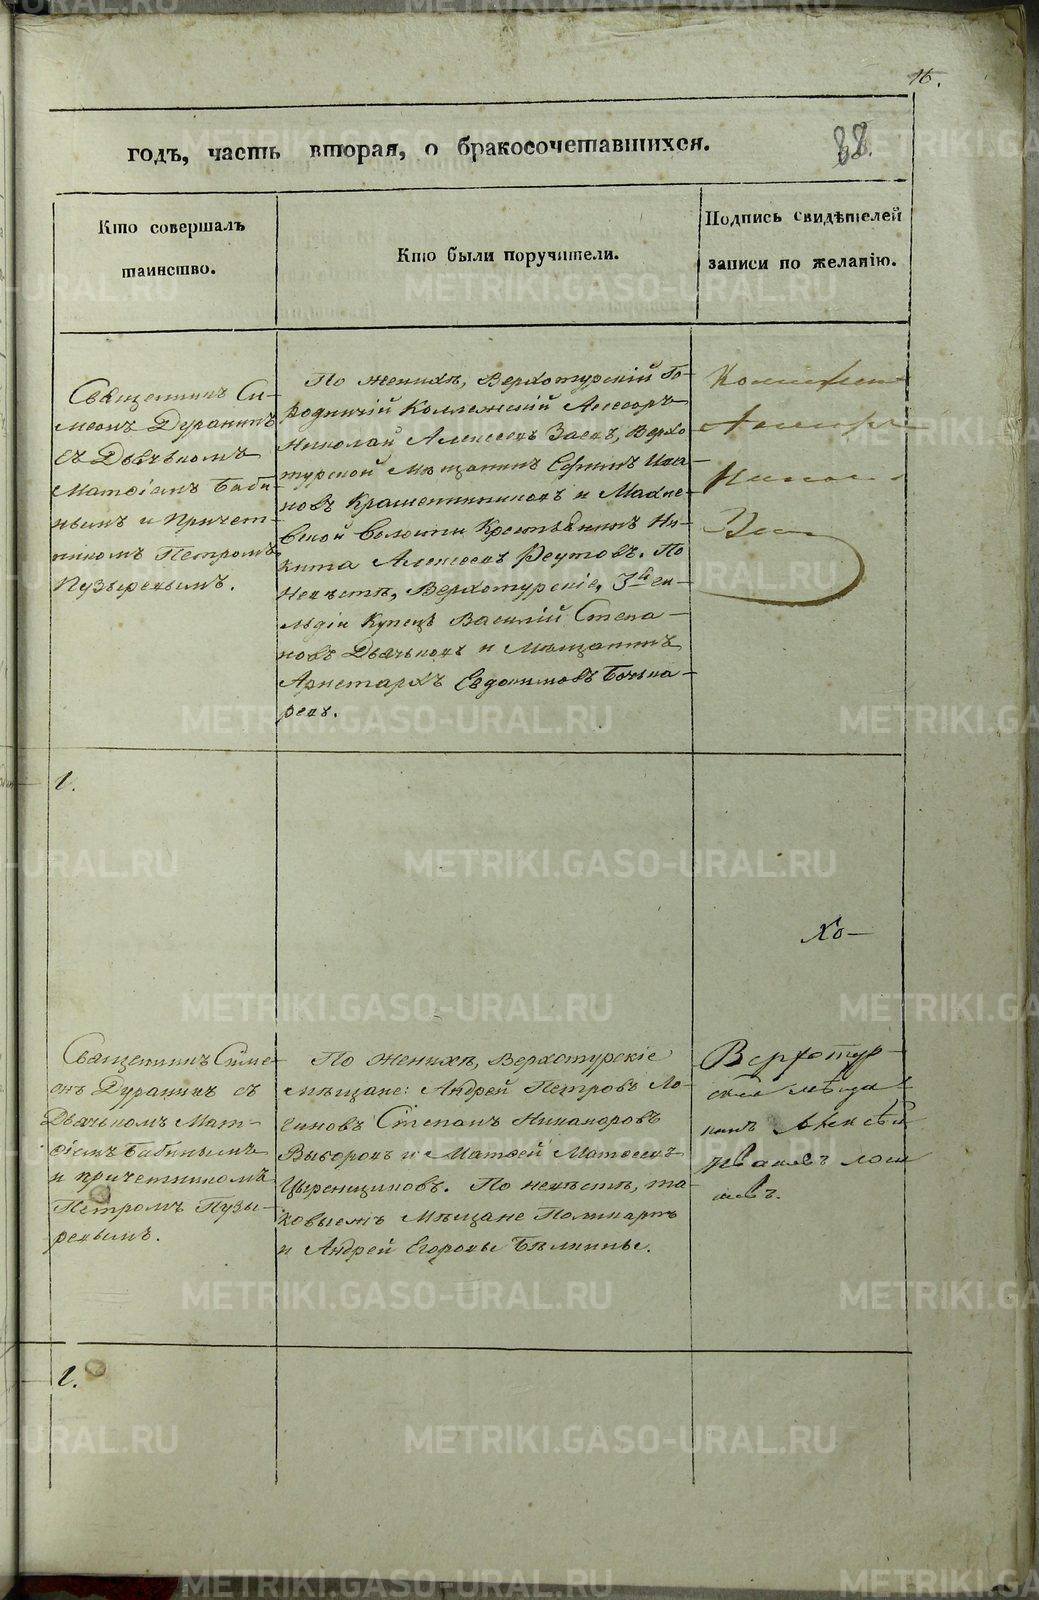 16.
годъ, часть вторая, о бракосочетавшихся.
88.
Кто совершалъ
таинство.
Кто были поручители.
Подпись свидѣтелей
записи по желанію.
Священникъ Си-
меонъ Дуранинъ
съ Дьячькомъ
Матѳіемъ Баби-
нымъ и Причет-
никомъ Петромъ
Пузыревымъ.
По женихѣ, Верхотурскій Го-
родничій Коллежскій Ассесоръ
Николай Алексеевъ Заевъ, Верхо
турской Мѣщанинъ Ефимъ Ива
новъ Крашенинниковъ и Махне-
вской волости Крестьянинъ Ни-
кита Алексеевъ Реутовъ. По
Невѣстѣ, Верхотурскіе, 3й ги-
льдіи Купецъ Василій Степа-
новъ Дьячьковъ и Мѣщанинъ
Аристархъ Евдокимовъ Бочька-
ревъ.
Николай
1.
Хо-
Священникъ Симе-
онъ Дуранинъ съ
Дьячькомъ Мат-
ѳіемъ Бабинымъ
и причетникомъ
Петромъ Пузы-
ревымъ.
По женихѣ, Верхотурскіе
мѣщане: Андрей Петровъ Ло-
гиновъ Степанъ Никаноровъ
Выборовъ и Матвей Матвеевъ
По невѣстѣ, та-
ковыежъ Мѣщане Поликарпъ
и Андрей Егоровы Бѣлкины.
Верхотур-
ской мѣща
нинъ Алексѣй
Ивановъ
1.
METRIKI.GASO-URAL.RU